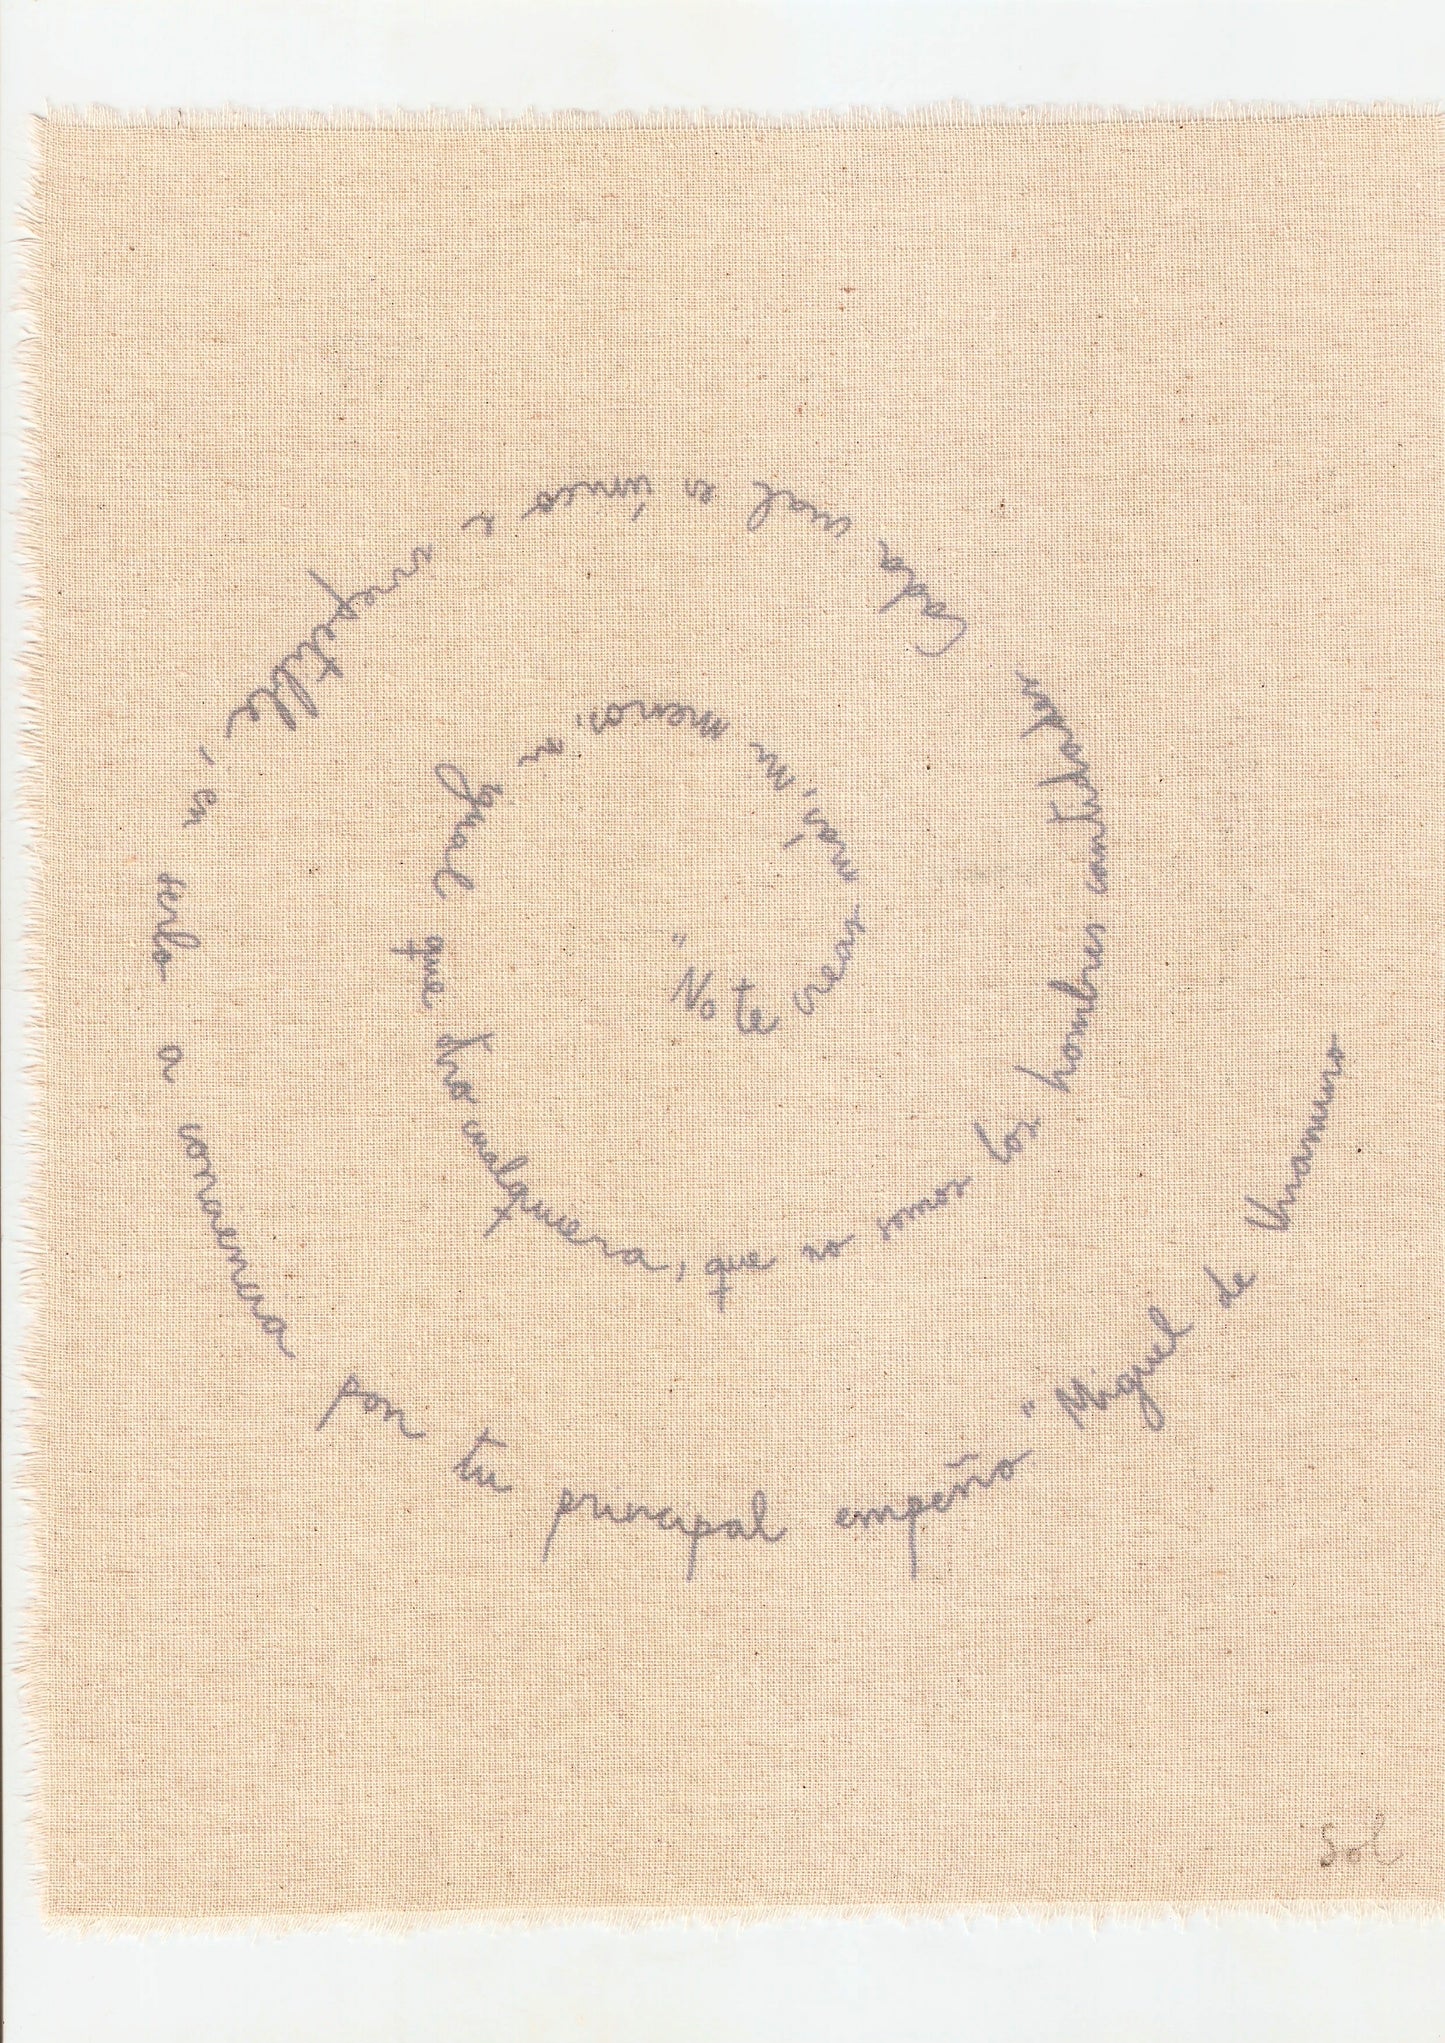 "No te creas más, ni menos, ni igual que otro cualquiera, que no somos los hombres cantidades Cada cual es único e irrepetible, en serlo a conciencia pon tu principal empeño" Miguel de Unamuno
Sol